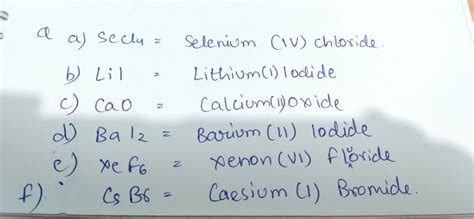 Q a) SeCl4 = Selenium (IV) chloride.
b) LiI = Lithium(I) Iodide
c) CaO = Calcium(II)Oxide
d) BaI2 = Barium (II) Iodide
e) XeF6 = Xenon (VI) Floride u
f) CsB6 = Caesium (I) Bromide.